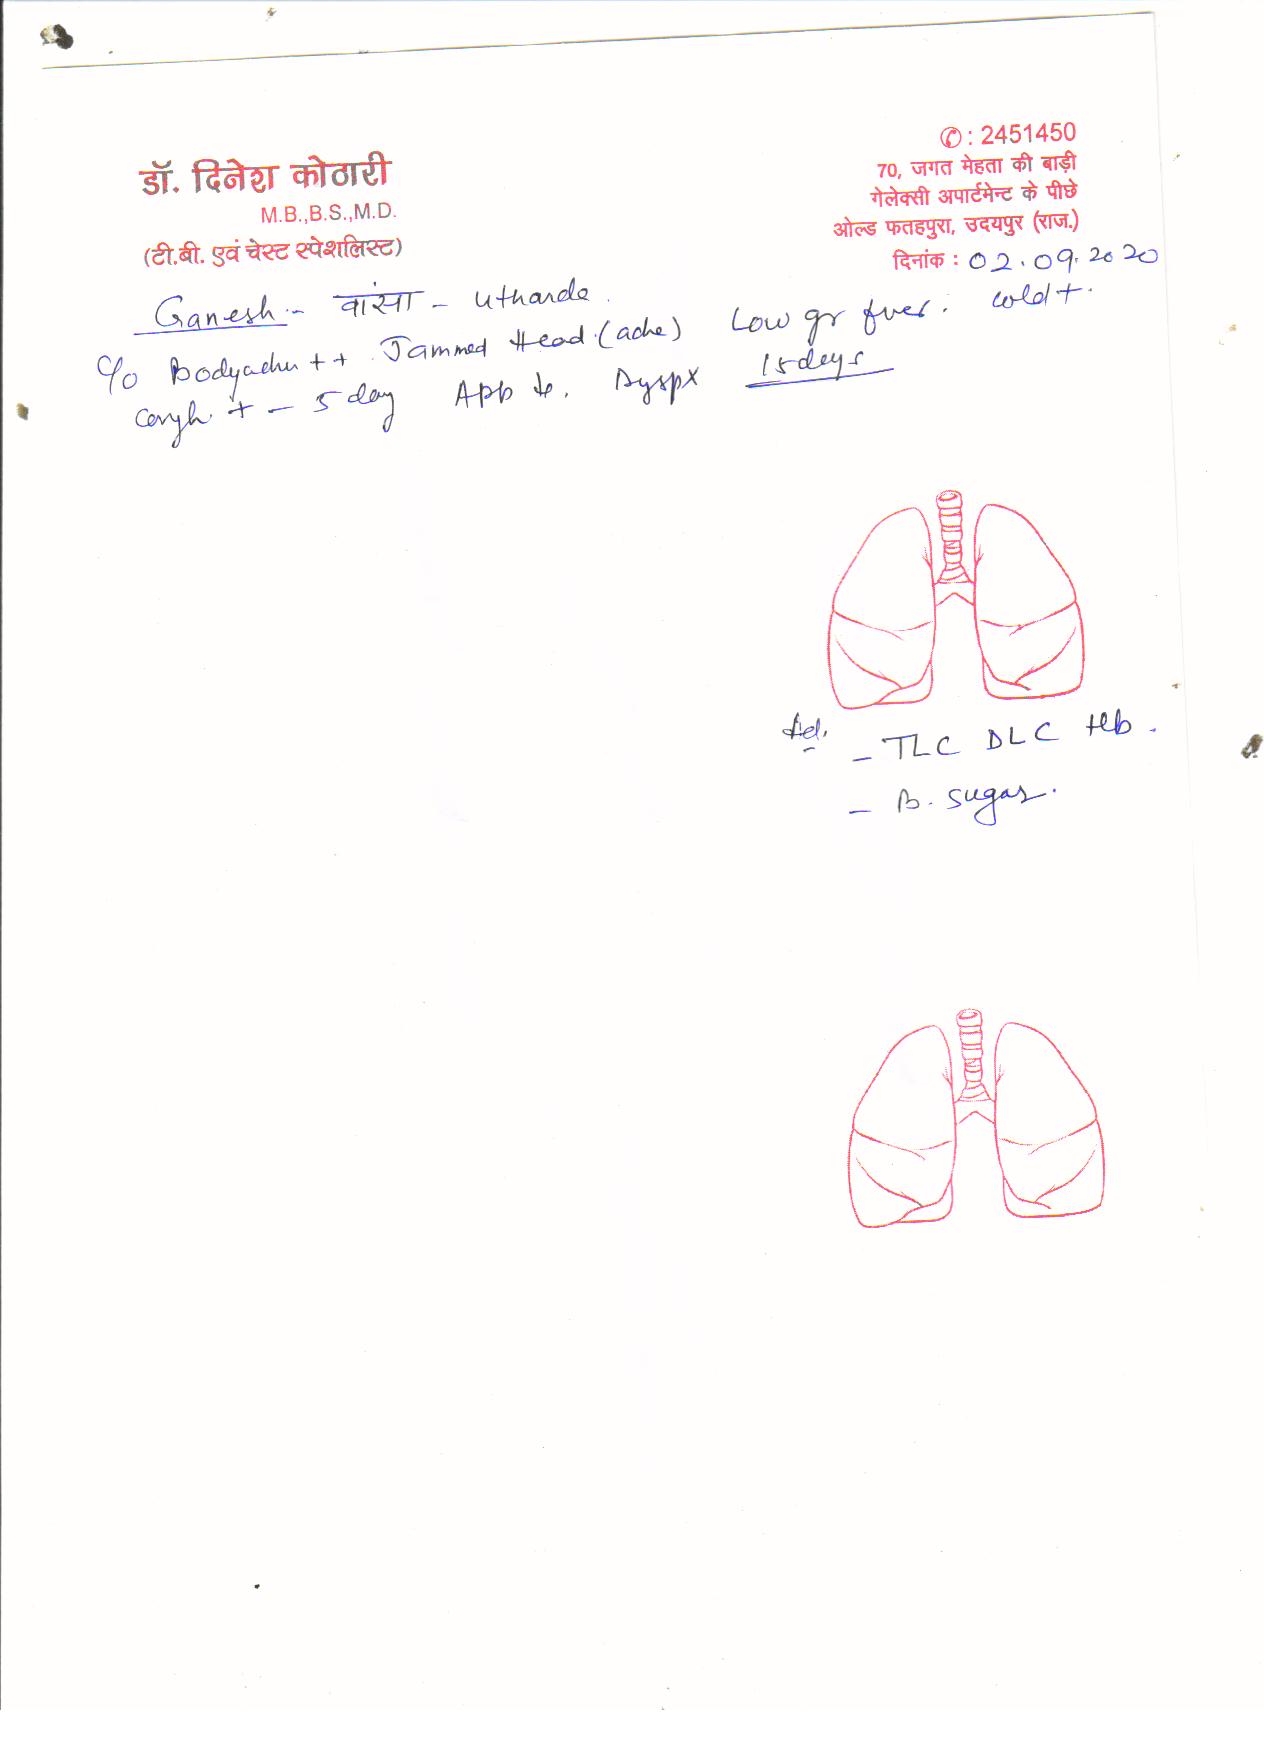 ✆ : 2451450
डॉ. दिनेश कोठारी
M.B.,B.S.,M.D.
(टी.बी. एवं चेस्ट स्पेशलिस्ट)
70, जगत मेहता की बाड़ी
गेलेक्सी अपार्टमेन्ट के पीछे
ओल्ड फतहपुरा, उदयपुर (राज.)
दिनांक : 02.09.2020
Ganesh - वांसा - Utharda.
C/o Bodyache ++ Jammed Head (ache) Low gr fever. cold +.
Cough + - 5 day App ↓. 15 days
- TLC DLC Hb.
- B. Sugar.